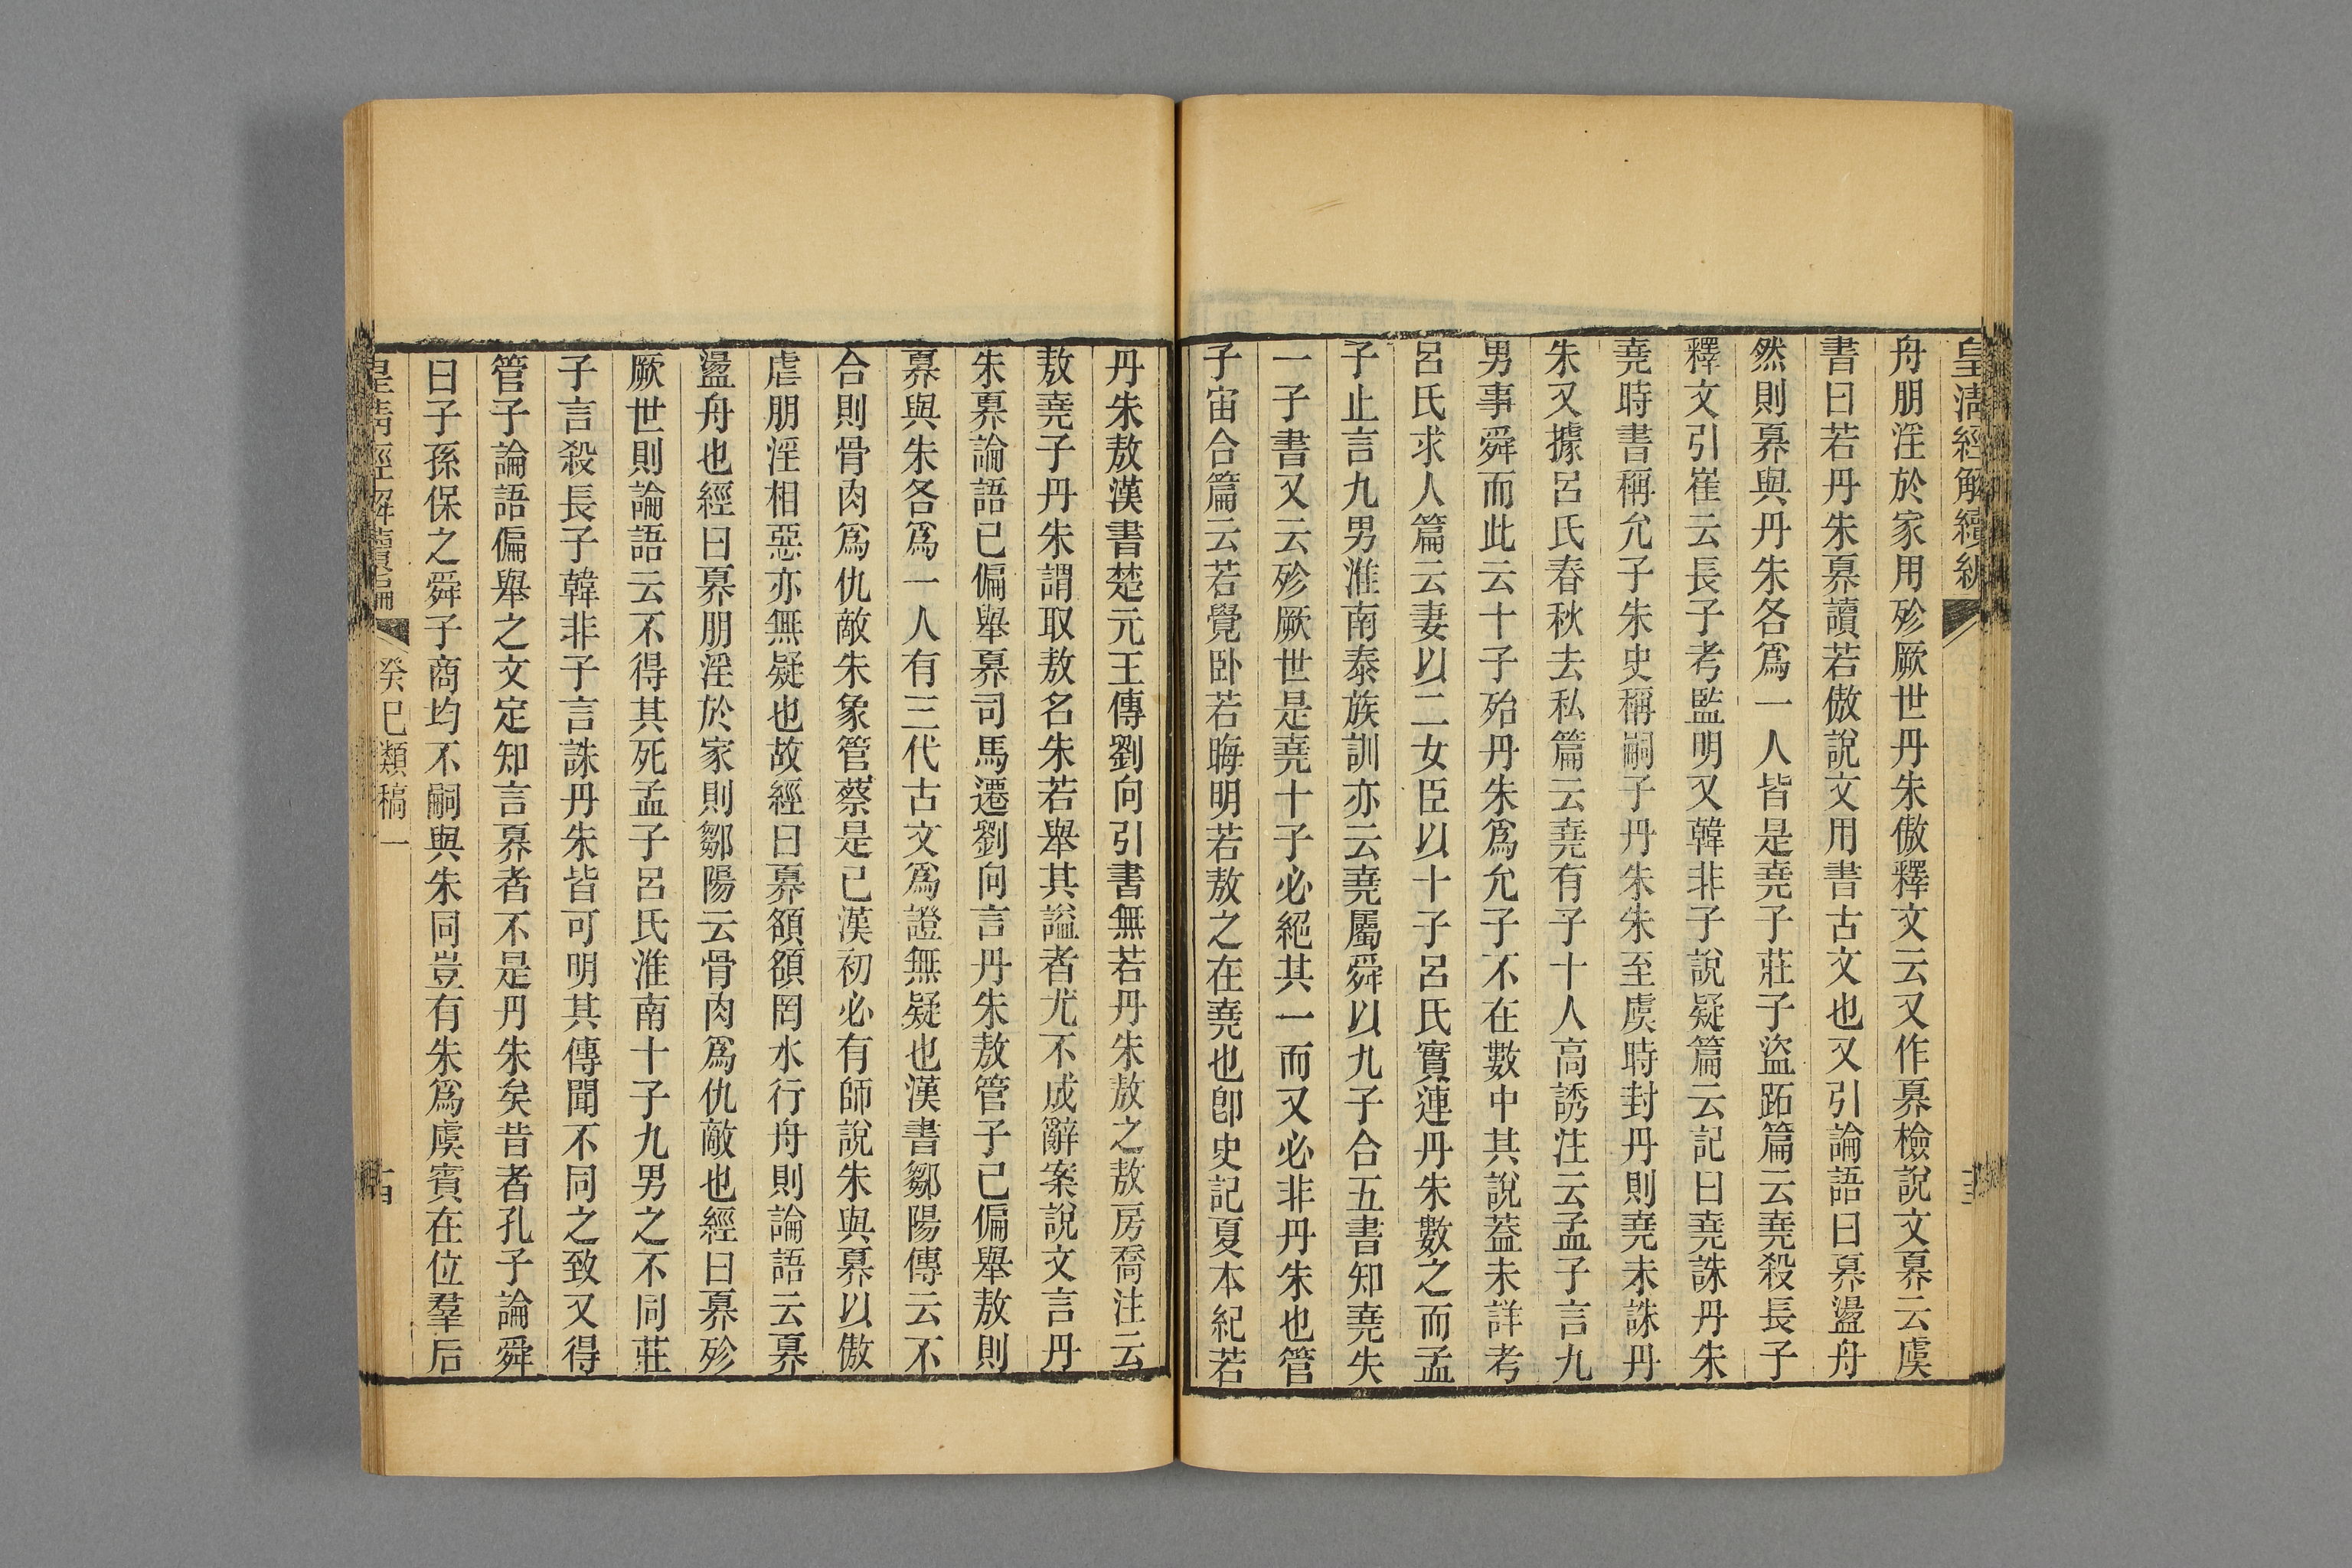 皇清經解續編
舟朋淫於家用殄厥世丹朱傲釋文云又作奡檢說文奡云虞
書曰若丹朱奡讀若傲說文用書古文也又引論語曰奡盪舟
然則奡與丹朱各爲一人皆是堯子莊子盜跖篇云堯殺長子
釋文引崔云長子考監明又韓非子說疑篇云記曰堯誅丹朱
堯時書稱允子朱史稱嗣子丹朱朱至虞時封丹則堯未誅丹
朱又據呂氏春秋去私篇云堯有子十人高誘注云孟子言九
男事舜而此云十子殆丹朱爲允子不在數中其說葢未詳考
呂氏求人篇云妻以二女臣以十子呂氏實連丹朱數之而孟
子止言九男淮南泰族訓亦云堯屬舜以九子合五書知堯失
一子書又云殄厥世是堯十子必絕其一而又必非丹朱也管
子宙合篇云若覺臥若晦明若敖之在堯也卽史記夏本紀若
丹朱敖漢書楚元王傳劉向引書無若丹朱敖之敖房喬注云
敖堯子丹朱謂取敖名朱若舉其謚者尤不成辭案說文言丹
朱奡論語已偏舉奡司馬遷劉向言丹朱敖管子已偏舉敖則
奡與朱各爲一人有三代古文爲證無疑也漢書鄒陽傳云不
合則骨肉爲仇敵朱象管蔡是已漢初必有師說朱與奡以傲
虐朋淫相惡亦無疑也故經曰奡頟頟罔水行舟則論語云奡
盪舟也經曰奡朋淫於家則鄒陽云骨肉爲仇敵也經曰奡殄
厥世則論語云不得其死孟子呂氏淮南十子九男之不同莊
子言殺長子韓非子言誅丹朱皆可明其傳聞不同之致又得
管子論語偏舉之文定知言奡者不是丹朱矣昔者孔子論舜
曰子孫保之舜子商均不嗣與朱同豈有朱爲虞賓在位羣后
皇清經解續編 癸巳類稿一